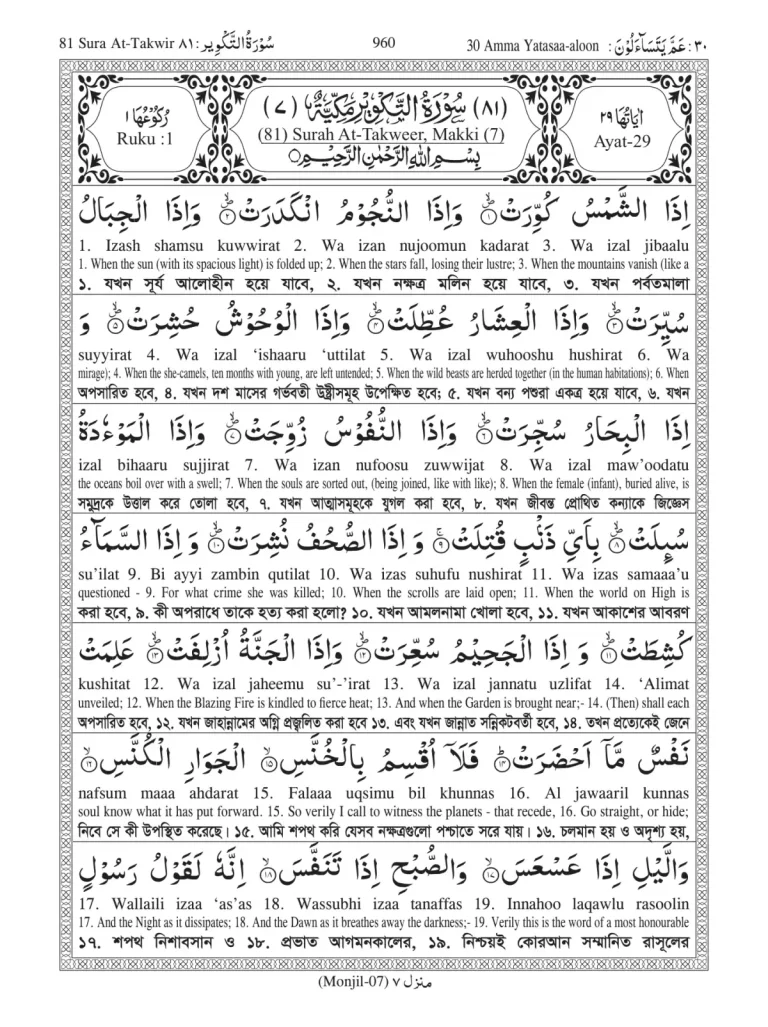 81 Sura At-Takwir ٨١ : سُوْرَةُ التَّكْوِيْر 960 30 Amma Yatasaa-aloon : عَمَّ يَتَسَآءَلُوْنَ : ٣٠
رُكُوْعُهَا ١ (٨١) سُوْرَةُ التَّكْوِيْرِ مَكِّيَّةٌ (٧) اٰيَاتُهَا ٢٩
Ruku :1 (81) Surah At-Takweer, Makki (7) Ayat-29
بِسْمِ اللّٰهِ الرَّحْمٰنِ الرَّحِيْمِ
اِذَا الشَّمْسُ كُوِّرَتْ ۙ﴿١﴾ وَاِذَا النُّجُوْمُ انْكَدَرَتْ ۙ﴿٢﴾ وَاِذَا الْجِبَالُ
1. Izash shamsu kuwwirat 2. Wa izan nujoomun kadarat 3. Wa izal jibaalu
1. When the sun (with its spacious light) is folded up; 2. When the stars fall, losing their lustre; 3. When the mountains vanish (like a
১. যখন সূর্য আলোহীন হয়ে যাবে, ২. যখন নক্ষত্র মলিন হয়ে যাবে, ৩. যখন পর্বতমালা
سُيِّرَتْ ۙ﴿٣﴾ وَاِذَا الْعِشَارُ عُطِّلَتْ ۙ﴿٤﴾ وَاِذَا الْوُحُوْشُ حُشِرَتْ ۙ﴿٥﴾ وَ
suyyirat 4. Wa izal ‘ishaaru ‘uttilat 5. Wa izal wuhooshu hushirat 6. Wa
mirage); 4. When the she-camels, ten months with young, are left untended; 5. When the wild beasts are herded together (in the human habitations); 6. When
অপসারিত হবে, ৪. যখন দশ মাসের গর্ভবতী উষ্ট্রীসমূহ উপেক্ষিত হবে; ৫. যখন বন্য পশুরা একত্র হয়ে যাবে, ৬. যখন
اِذَا الْبِحَارُ سُجِّرَتْ ۙ﴿٦﴾ وَاِذَا النُّفُوْسُ زُوِّجَتْ ۙ﴿٧﴾ وَاِذَا الْمَوْءٗدَةُ
izal bihaaru sujjirat 7. Wa izan nufoosu zuwwijat 8. Wa izal maw’oodatu
the oceans boil over with a swell; 7. When the souls are sorted out, (being joined, like with like); 8. When the female (infant), buried alive, is
সমুদ্রকে উত্তাল করে তোলা হবে, ৭. যখন আত্মাসমূহকে যুগল করা হবে, ৮. যখন জীবন্ত প্রোথিত কন্যাকে জিজ্ঞেস
سُئِلَتْ ۙ﴿٨﴾ بِاَيِّ ذَنْۢبٍ قُتِلَتْ ۚ﴿٩﴾ وَ اِذَا الصُّحُفُ نُشِرَتْ ۙ﴿١٠﴾ وَ اِذَا السَّمَآءُ
su’ilat 9. Bi ayyi zambin qutilat 10. Wa izas suhufu nushirat 11. Wa izas samaaa’u
questioned - 9. For what crime she was killed; 10. When the scrolls are laid open; 11. When the world on High is
করা হবে, ৯. কী অপরাধে তাকে হত্য করা হলো? ১০. যখন আমলনামা খোলা হবে, ১১. যখন আকাশের আবরণ
كُشِطَتْ ۙ﴿١١﴾ وَ اِذَا الْجَحِيْمُ سُعِّرَتْ ۙ﴿١٢﴾ وَاِذَا الْجَنَّةُ اُزْلِفَتْ ۙ﴿١٣﴾ عَلِمَتْ
kushitat 12. Wa izal jaheemu su’-’irat 13. Wa izal jannatu uzlifat 14. ‘Alimat
unveiled; 12. When the Blazing Fire is kindled to fierce heat; 13. And when the Garden is brought near;- 14. (Then) shall each
অপসারিত হবে, ১২. যখন জাহান্নামের অগ্নি প্রজ্বলিত করা হবে ১৩. এবং যখন জান্নাত সন্নিকটবর্তী হবে, ১৪. তখন প্রত্যেকেই জেনে
نَفْسٌ مَّاۤ اَحْضَرَتْ ؕ﴿١٤﴾ فَلَاۤ اُقْسِمُ بِالْخُنَّسِ ۙ﴿١٥﴾ الْجَوَارِ الْكُنَّسِ ۙ﴿١٦﴾
nafsum maaa ahdarat 15. Falaaa uqsimu bil khunnas 16. Al jawaaril kunnas
soul know what it has put forward. 15. So verily I call to witness the planets - that recede, 16. Go straight, or hide;
নিবে সে কী উপস্থিত করেছে। ১৫. আমি শপথ করি যেসব নক্ষত্রগুলো পশ্চাতে সরে যায়। ১৬. চলমান হয় ও অদৃশ্য হয়,
وَالَّيْلِ اِذَا عَسْعَسَ ۙ﴿١٧﴾ وَالصُّبْحِ اِذَا تَنَفَّسَ ۙ﴿١٨﴾ اِنَّهٗ لَقَوْلُ رَسُوْلٍ
17. Wallaili izaa ‘as’as 18. Wassubhi izaa tanaffas 19. Innahoo laqawlu rasoolin
17. And the Night as it dissipates; 18. And the Dawn as it breathes away the darkness;- 19. Verily this is the word of a most honourable
১৭. শপথ নিশাবসান ও ১৮. প্রভাত আগমনকালের, ১৯. নিশ্চয়ই কোরআন সম্মানিত রাসূলের
(Monjil-07) ٧ منزل